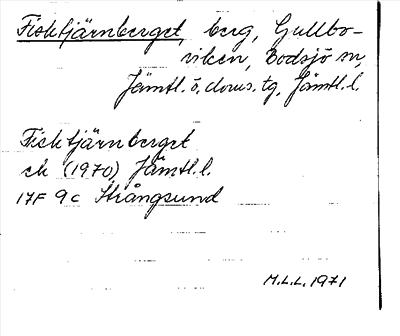 Fisktjärnberget, berg, Gullbo-
viken, Bodsjö sn,
Jämtl. ö. doms. tg, Jämtl. l.
Fisktjärnberget
ek (1970) Jämtl. l.
17F 9c Strångsund
M.L.L. 1971